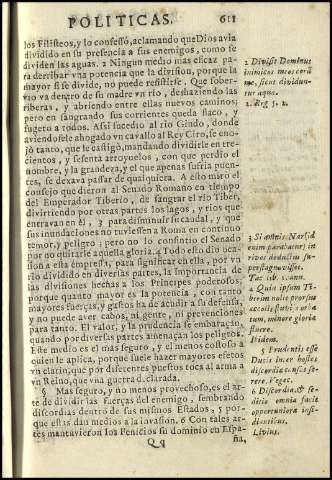 POLITICAS. 611
los Filisteos, y lo confessó, aclamando que Dios avia
dividido en su presencia a sus enemigos, como se
dividen las aguas. 2 Ningun medio mas eficaz pa-
ra derribar vna potencia que la division, porque la
mayor si se divide, no puede resistirse. Que sober-
vio va dentro de su madre vn rio, deshaziendo las
riberas, y abriendo entre ellas nuevos caminos;
pero en sangrando sus corrientes queda flaco, y
sugeto a todos. Assi sucedió al rio Gindo, donde
aviendosele ahogado vn cavallo al Rey Ciro, se eno-
jó tanto, que le castigó, mandando dividirle en tre-
cientos, y sesenta arroyuelos, con que perdio el
nombre, y la grandeza, y el que apenas sufria puen-
tes, se dexava passar de qualquiera. A esto miró el
consejo que dieron al Senado Romano en tiempo
del Emperador Tiberio, de sangrar el rio Tiber,
divirtiendo por otras partes los lagos, y rios que
entravan en él, 3 para disminuir su caudal, y que
sus inundaciones no tuviessen a Roma en continuo
temor, y peligro; pero no lo consintio el Senado
por no quitarle aquella gloria. 4 Todo esto dió oca-
sion a esta empresa, para significar en ella, por vn
rio dividido en diversas partes, la importancia de
las divisiones hechas a los Principes poderosos;
porque quanto mayor es la potencia, con tanto
mayores fuerças, y gastos ha de acudir a su defensa,
y no puede aver cabos, ni gente, ni prevenciones
para tanto. El valor, y la prudencia se embaraçan,
quando por diversas partes amenaçan los peligros.
Este medio es el mas seguro, y el menos costoso a
quien le aplica, porque suele hazer mayores efetos
vn clarin, que por diferentes puestos toca al arma a
vn Reino, que vna guerra declarada.
§ Mas seguro, y no menos provechoso, es el ar-
te de dividir las fuerças del enemigo, sembrando
discordias dentro de sus mismos Estados, 5 por-
que estas dan medios a la invasion. 6 Con tales ar-
tes mantuvieron los Fenicios su dominio en Espa-
Qq ña,
2 Divisit Dominus
inimicos meos corã
me, sicut dividun-
tur aquæ.
2. Reg. 5. 2.
3 Si amnis Nar (id
enim parabatur) in
rivos deductus su-
perstagnavisset.
Tac. lib. 1. ann.
4 Quin ipsum Ti-
berim nolle prorsus
accolis fluviis orba-
tum, minore gloria
fluere.
Ibidem.
5 Prudentis esse
Ducis inter hostes
discordiæ causas se-
rere. Veget.
6 Discordia, & se-
ditio omnia facit
opportuniora insi-
diantibus.
Livius.